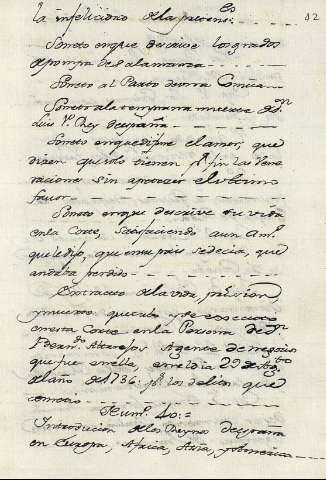 la infelicidad de la pretens.on 32
Soneto en que descrive los grados
de pompa de Salamanca
Soneto al Parto de una Comica
Soneto a la temprana muerte de Dn
Luis 1º Rey de españa
Soneto en que difine el amor, que
dizen que solo tienen pr fin las Vene
raciones sin apetezer el vltimo
favor
Soneto en que descrive su vida
en la Corte, satisfaciendo a un Amº
que le dijo, que en su pais se decia, que
andaba perdido
Extracto de la vida, prission,
y muerte que tubo y se executo
en esta Corte en la Persona de Dn
Agente de negocios
que fue en ella, en el dia 29 de
del año de 1736. pr los delitos que
cometio
Num.º 40.=
Introducion a los Reynos de españa
en Europa, Africa, Asia, y America